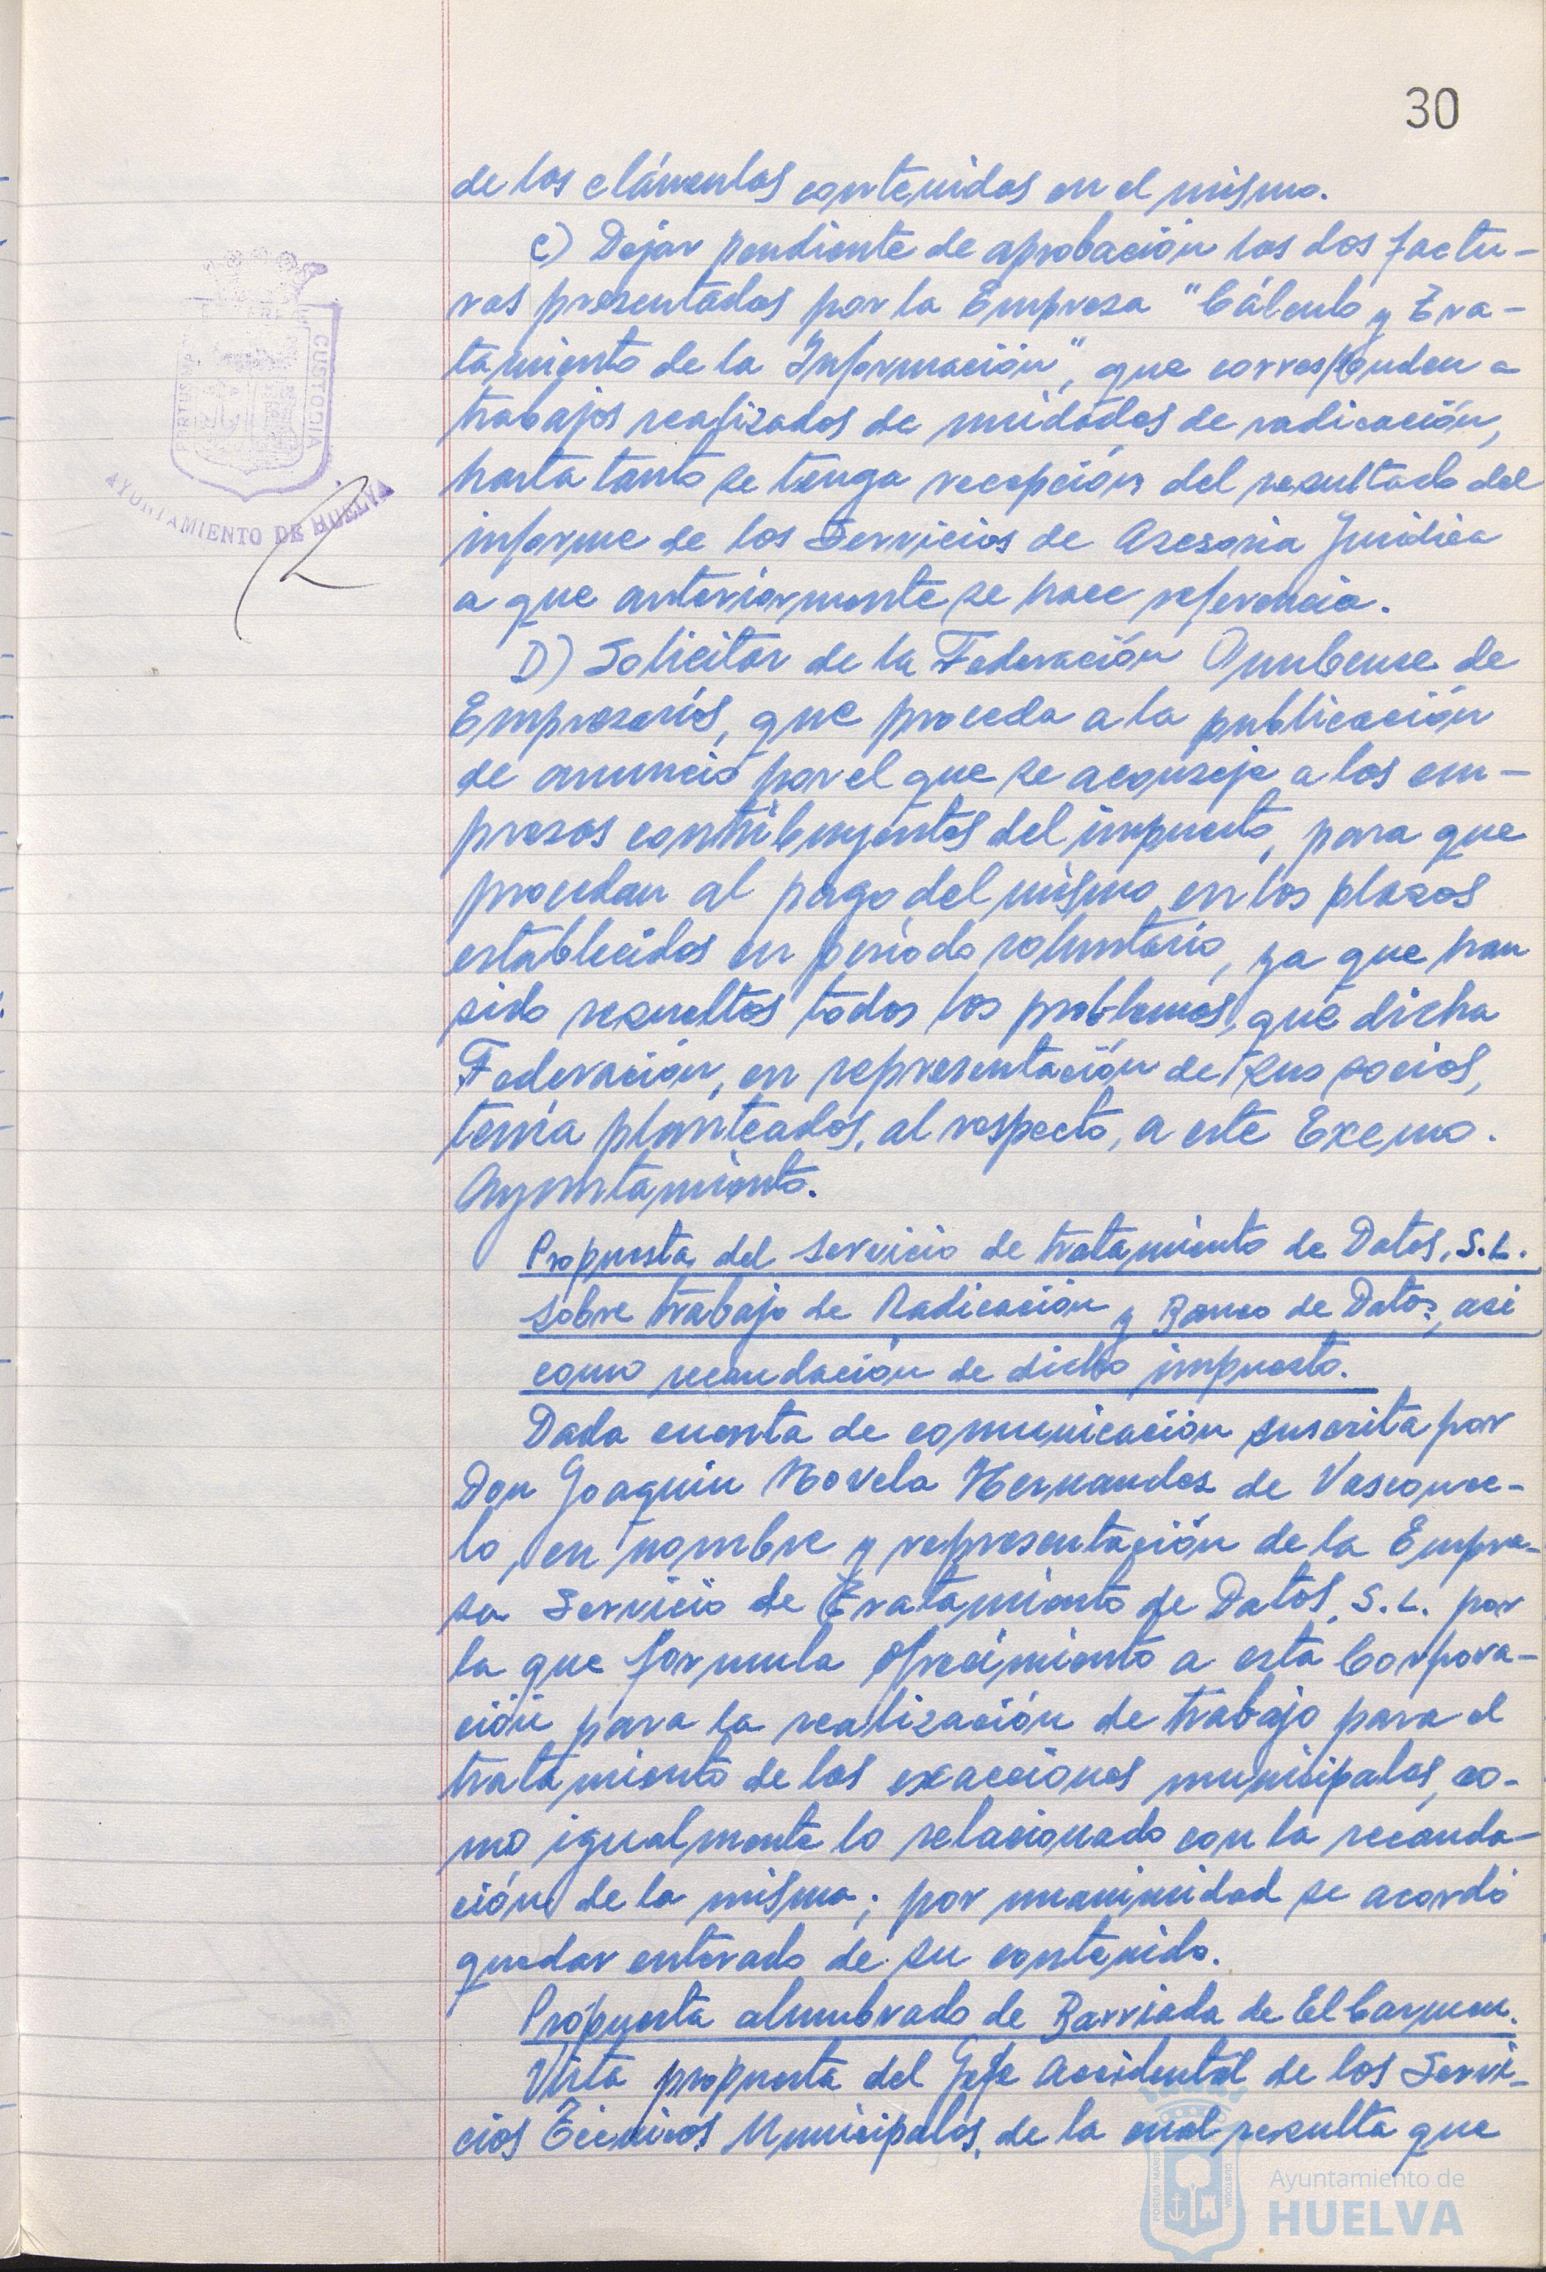 30
de las cláusulas contenidas en el mismo.
C) Dejar pendiente de aprobación las dos factu-
ras presentadas por la Empresa "Cálculo y Tra-
tamiento de la Información", que corresponden a
trabajos realizados de unidades de radicación,
hasta tanto se tenga recepción del resultado del
informe de los Servicios de Asesoria Juridica
a que anteriormente se hace referencia.
D) Solicitar de la Federación Onubense de
Empresarios, que proceda a la publicación
de anuncio por el que se aconseje a las em-
presas contribuyentes del impuesto, para que
procedan al pago del mismo en los plazos
establecidos en periodo voluntario, ya que han
sido resueltos todos los problemas que dicha
Federación, en representación de sus socios,
tenía planteados, al respecto, a este Excmo.
Ayuntamiento.
Propuesta del Servicio de tratamiento de Datos, S.L.
sobre trabajo de Radicación y Banco de Datos, asi
como recaudación de dicho impuesto.
Dada cuenta de comunicación suscrita por
Don Joaquin Novela Hernandez de Vasconce-
lo, en nombre y representación de la Empre-
sa Servicio de Tratamiento de Datos, S.L. por
la que formula ofrecimiento a esta Corpora-
ción para la realización de trabajo para el
tratamiento de las exacciones municipales, co-
mo igualmente lo relacionado con la recauda-
ción de la misma; por unanimidad se acordó
quedar enterado de su contenido.
Propuesta alumbrado de Barriada de El Carmen.
Vista propuesta del Jefe Accidental de los Servi-
cios Técnicos Municipales, de la cual resulta que
PORTUS MARIS
CUSTODIA
AYUNTAMIENTO DE HUELVA
Ayuntamiento de
HUELVA